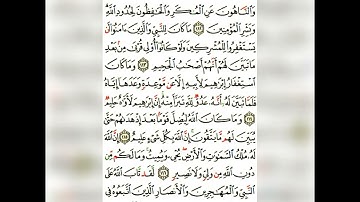 وَٱلنَّاهُونَ عَنِ ٱلْمُنكَرِ وَٱلْحَٰفِظُونَ لِحُدُودِ ٱللَّهِ
وَبَشِّرِ ٱلْمُؤْمِنِينَ ١١٢ مَا كَانَ لِلنَّبِيِّ وَٱلَّذِينَ ءَامَنُوٓا۟ أَن
يَسْتَغْفِرُوا۟ لِلْمُشْرِكِينَ وَلَوْ كَانُوٓا۟ أُو۟لِى قُرْبَىٰ مِنۢ بَعْدِ
مَا تَبَيَّنَ لَهُمْ أَنَّهُمْ أَصْحَٰبُ ٱلْجَحِيمِ ١١٣ وَمَا كَانَ
ٱسْتِغْفَارُ إِبْرَٰهِيمَ لِأَبِيهِ إِلَّا عَن مَّوْعِدَةٍ وَعَدَهَآ إِيَّاهُ
فَلَمَّا تَبَيَّنَ لَهُۥٓ أَنَّهُۥ عَدُوٌّ لِّلَّهِ تَبَرَّأَ مِنْهُ إِنَّ إِبْرَٰهِيمَ لَأَوَّٰهٌ حَلِيمٌ
١١٤ وَمَا كَانَ ٱللَّهُ لِيُضِلَّ قَوْمًۢا بَعْدَ إِذْ هَدَىٰهُمْ حَتَّىٰ
يُبَيِّنَ لَهُم مَّا يَتَّقُونَ إِنَّ ٱللَّهَ بِكُلِّ شَىْءٍ عَلِيمٌ ١١٥ إِنَّ ٱللَّهَ
لَهُۥ مُلْكُ ٱلسَّمَٰوَٰتِ وَٱلْأَرْضِ يُحْىِۦ وَيُمِيتُ وَمَا لَكُم مِّن
دُونِ ٱللَّهِ مِن وَلِىٍّ وَلَا نَصِيرٍ ١١٦ لَّقَد تَّابَ ٱللَّهُ عَلَى
ٱلنَّبِىِّ وَٱلْمُهَٰجِرِينَ وَٱلْأَنصَارِ ٱلَّذِينَ ٱتَّبَعُوهُ فِى